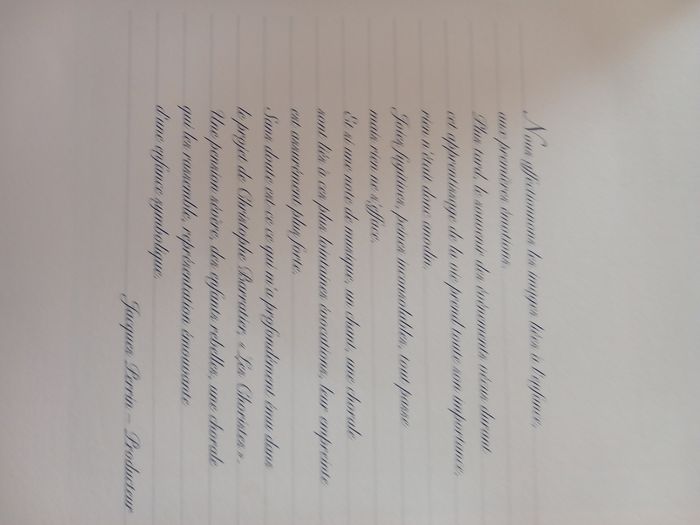 Nous affectionnons les images liées à l'enfance,
aux premières émotions.
Plus tard, le souvenir des événements vécus durant
cet apprentissage de la vie prend toute son importance,
rien n'était donc anodin.
Joies fugitives, peines insondables, tout passe
mais rien ne s'efface.
Et si une note de musique, un chant, une chorale
sont liés à ces plus lointaines évocations, leur empreinte
est assurément plus forte.
Sans doute est-ce ce qui m'a profondément ému dans
le projet de Christophe Barratier, « Les Choristes ».
Une pension sévère, des enfants rebelles, une chorale
qui les rassemble, représentation émouvante
d'une enfance symbolique.
Jacques Perrin – Producteur